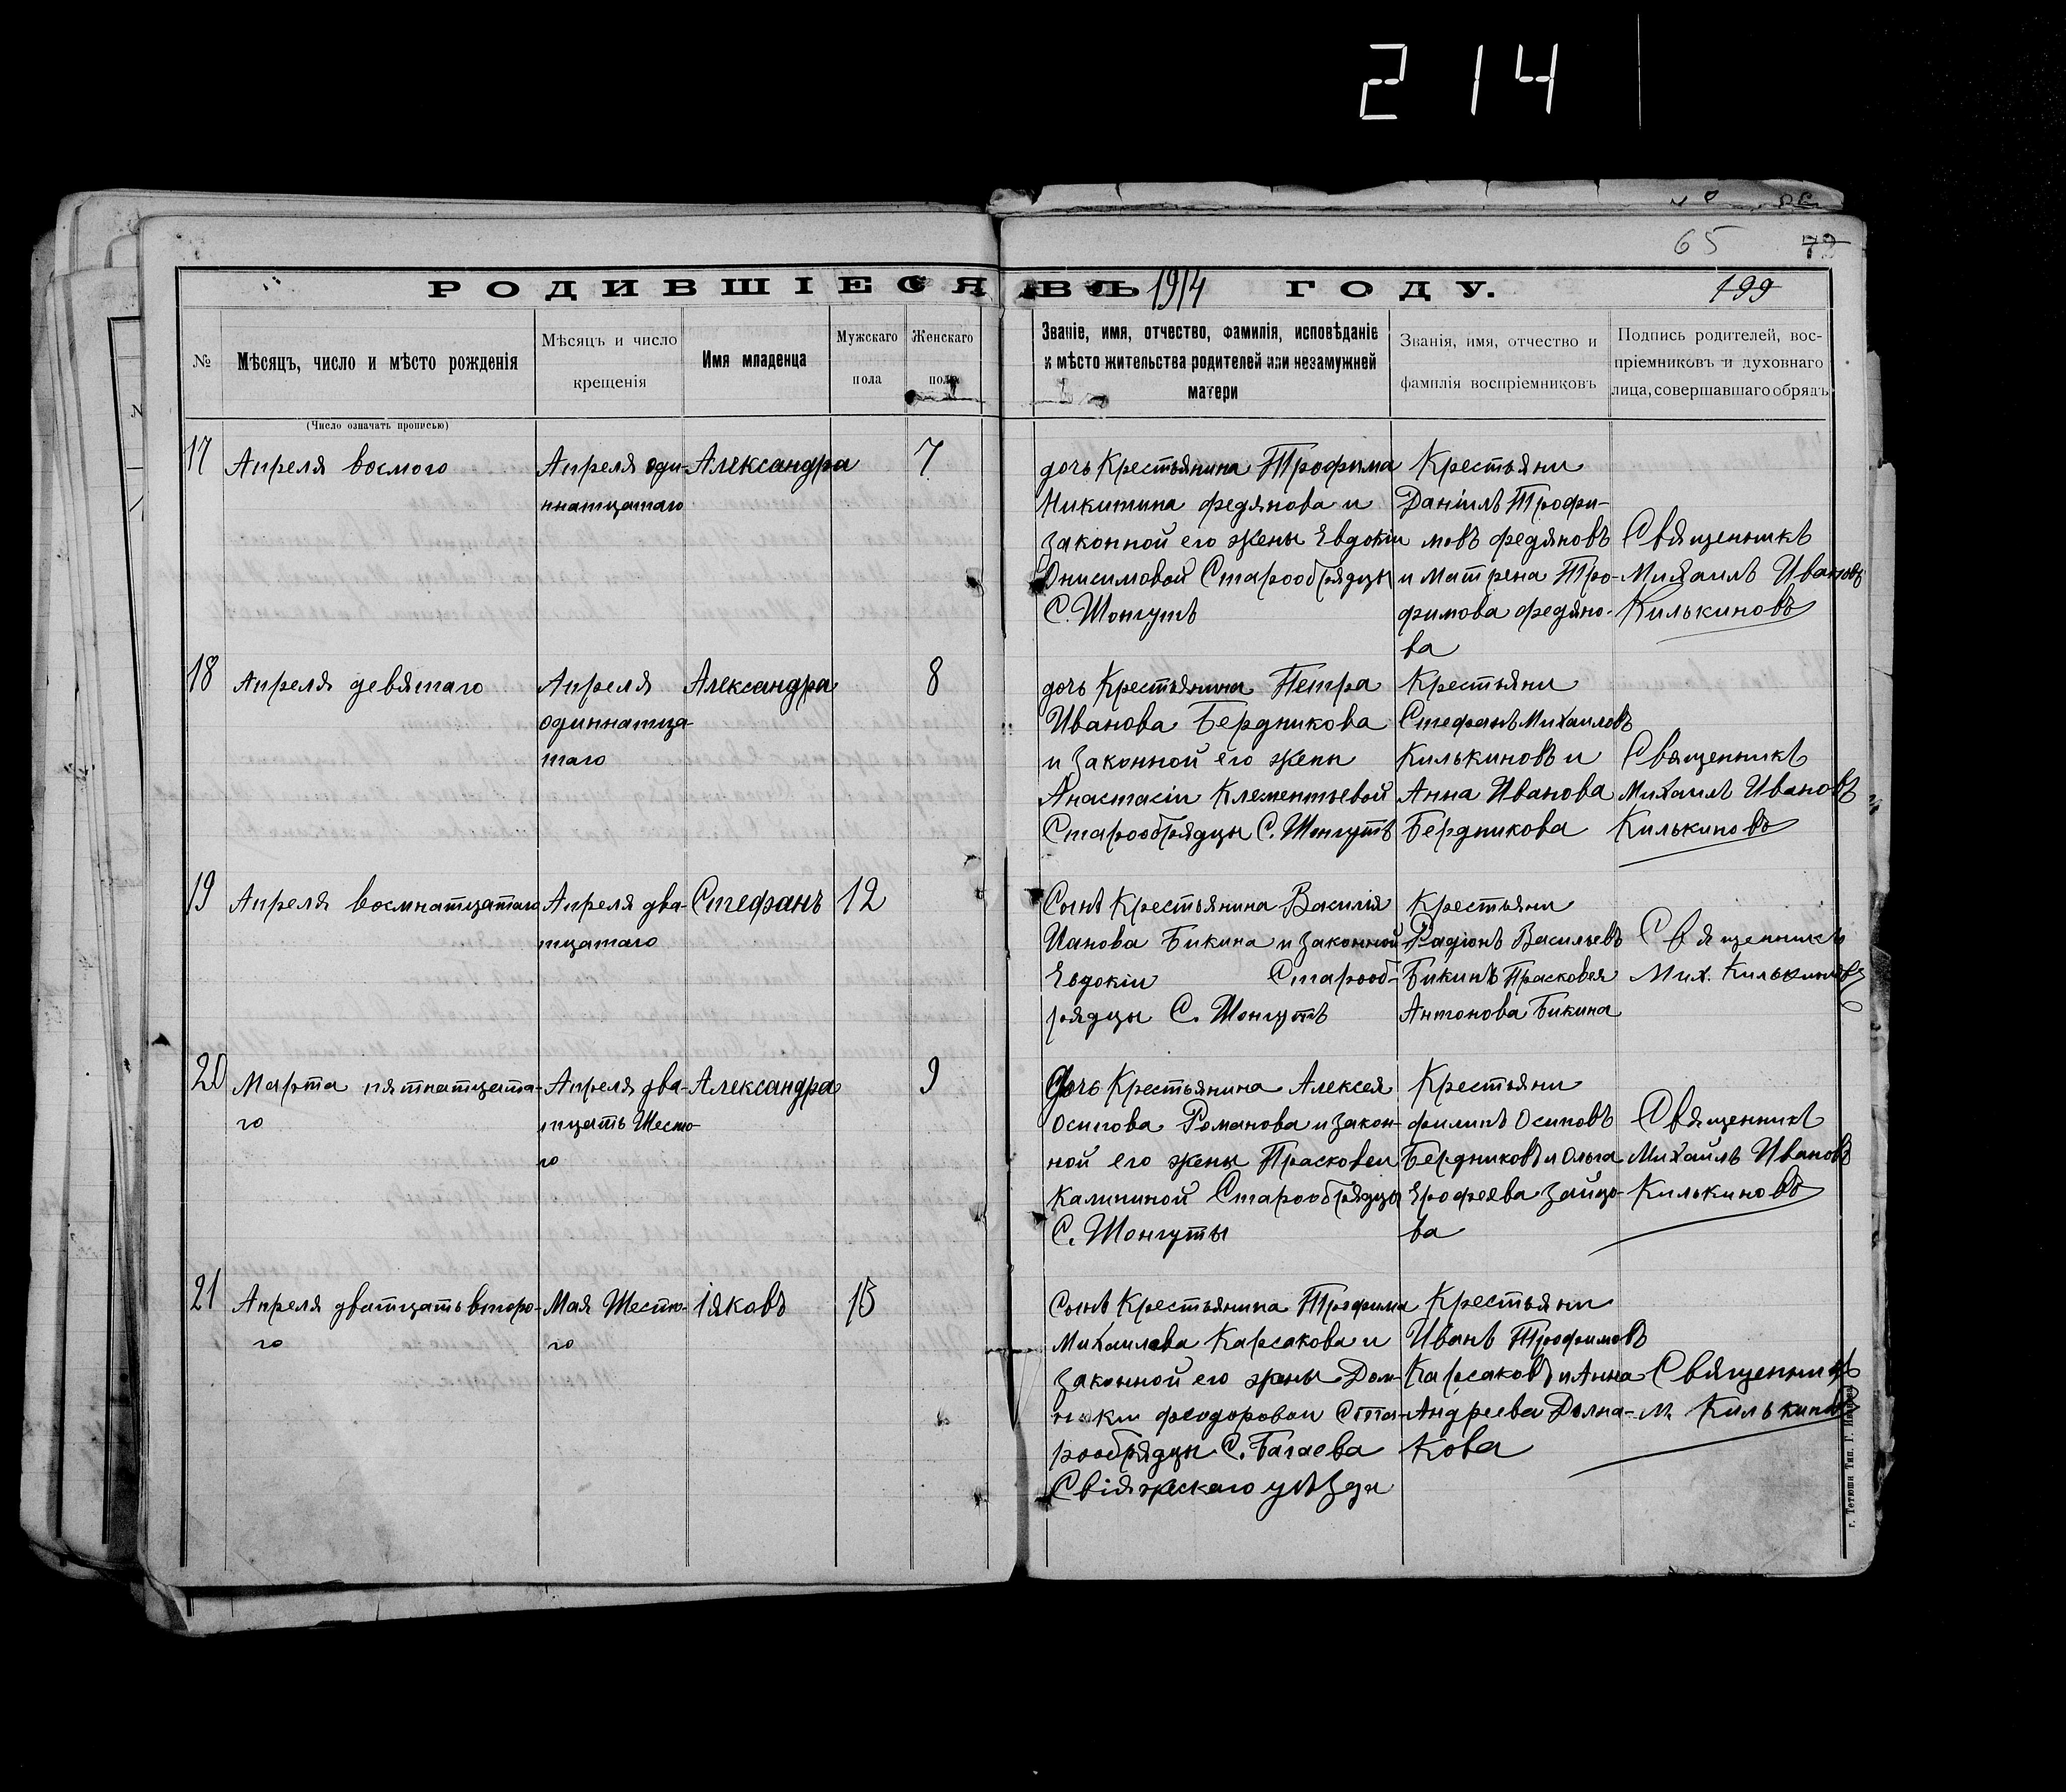 214
65 79
РОДИВШІЕСЯ ВЪ 1914 ГОДУ. 199
№
Мѣсяцъ, число и мѣсто рожденія
(Число означать прописью)
Мѣсяцъ и число
крещенія
Имя младенца
Мужскаго
пола
Женскаго
пола
Званіе, имя, отчество, фамилія, исповѣданіе
и мѣсто жительства родителей или незамужней
матери
Званія, имя, отчество и
фамилія воспріемниковъ
Подпись родителей, вос-
пріемниковъ и духовнаго
лица, совершавшаго обрядъ
17
Апреля восмого
Апреля оди-
ннатцатаго
Александра
7
дочь Крестьянина Трофима
Никитина федянова и
законной его жены Евдокіи
Онисимовой Старообрядцы
С. Шонгутъ
Крестьяни
Даніилъ Трофи-
мовъ федяновъ
и Матрена Тро-
фимова федяно-
ва
Священникъ
Михаилъ Ивановъ
Килькиновъ
18
Апреля девятаго
Апреля
одиннатца-
таго
Александра
8
дочь Крестьянина Петра
Иванова Бердникова
и Законной его жены
Анастасіи Клементьевой
Старообрядцы С. Шонгутъ
Крестьяни
Стефанъ Михаиловъ
Килькиновъ и
Анна Иванова
Бердникова
Священникъ
Михаилъ Ивановъ
Килькиновъ
19
Апреля восмнатцатаго
Апреля два-
тцатаго
Стефанъ
12
Сынъ Крестьянина Василія
Ианова Бикина и законной
Евдокіи Старооб-
рядцы С. Шонгутъ
Крестьяни
Радіонъ Васильевъ
Бикинъ Прасковея
Антонова Бикина
Священникъ
Мих. Килькиновъ
20
Марта пятнатцата-
го
Апреля два-
тцать Шесто-
го
Александра
9
Дочь Крестьянина Алексея
Осипова Романова и закон-
ной его жены Прасковеи
Калининой Старообрядцы
С. Шонгуты
Крестьяни
филипъ Осиповъ
Бердниковъ и Ольга
Ерофеева Зайцо-
ва
Священникъ
Михаилъ Ивановъ
Килькиновъ
21
Апреля дватцать второ-
го
Мая Шесто-
го
Іяковъ
13
Сынъ Крестьянина Трофима
Михаилова Карсакова и
законной его жены Дом-
никіи феодоровои Ста-
рообрядцы С. Багаева
Свіяжскаго уѣзда
Крестьяни
Иванъ Трофимовъ
Карсаковъ и Анна
Андреева
кова
Священникъ
М. Килькиновъ